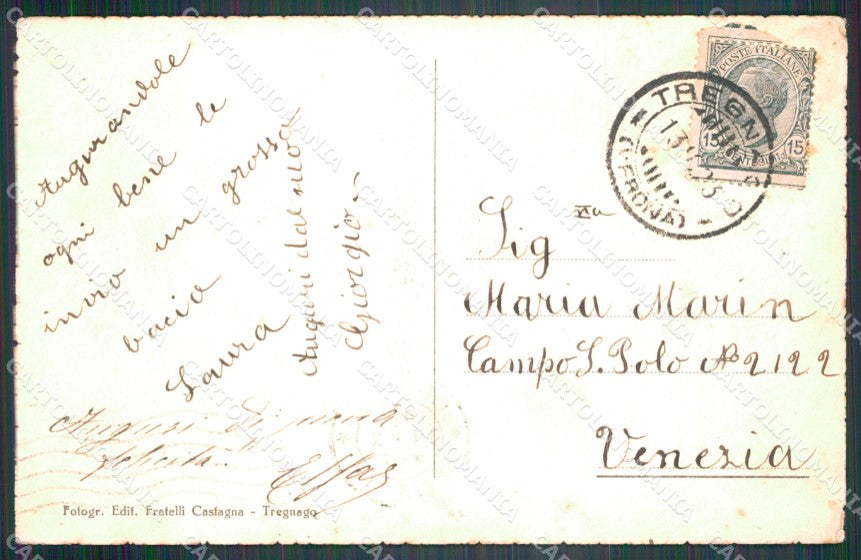 Augurandole
ogni bene le
invio un grosso
bacio
Laura
Auguri dal suo
Giorgio
Auguri di
felicità.
Fotogr. Edit. Fratelli Castagna - Tregnago
POSTE ITALIANE
15 15
TREGNAGO
(VERONA)
Sig
Maria Marin
Campo S. Polo No 2122
Venezia
CARTOLINOMANIA